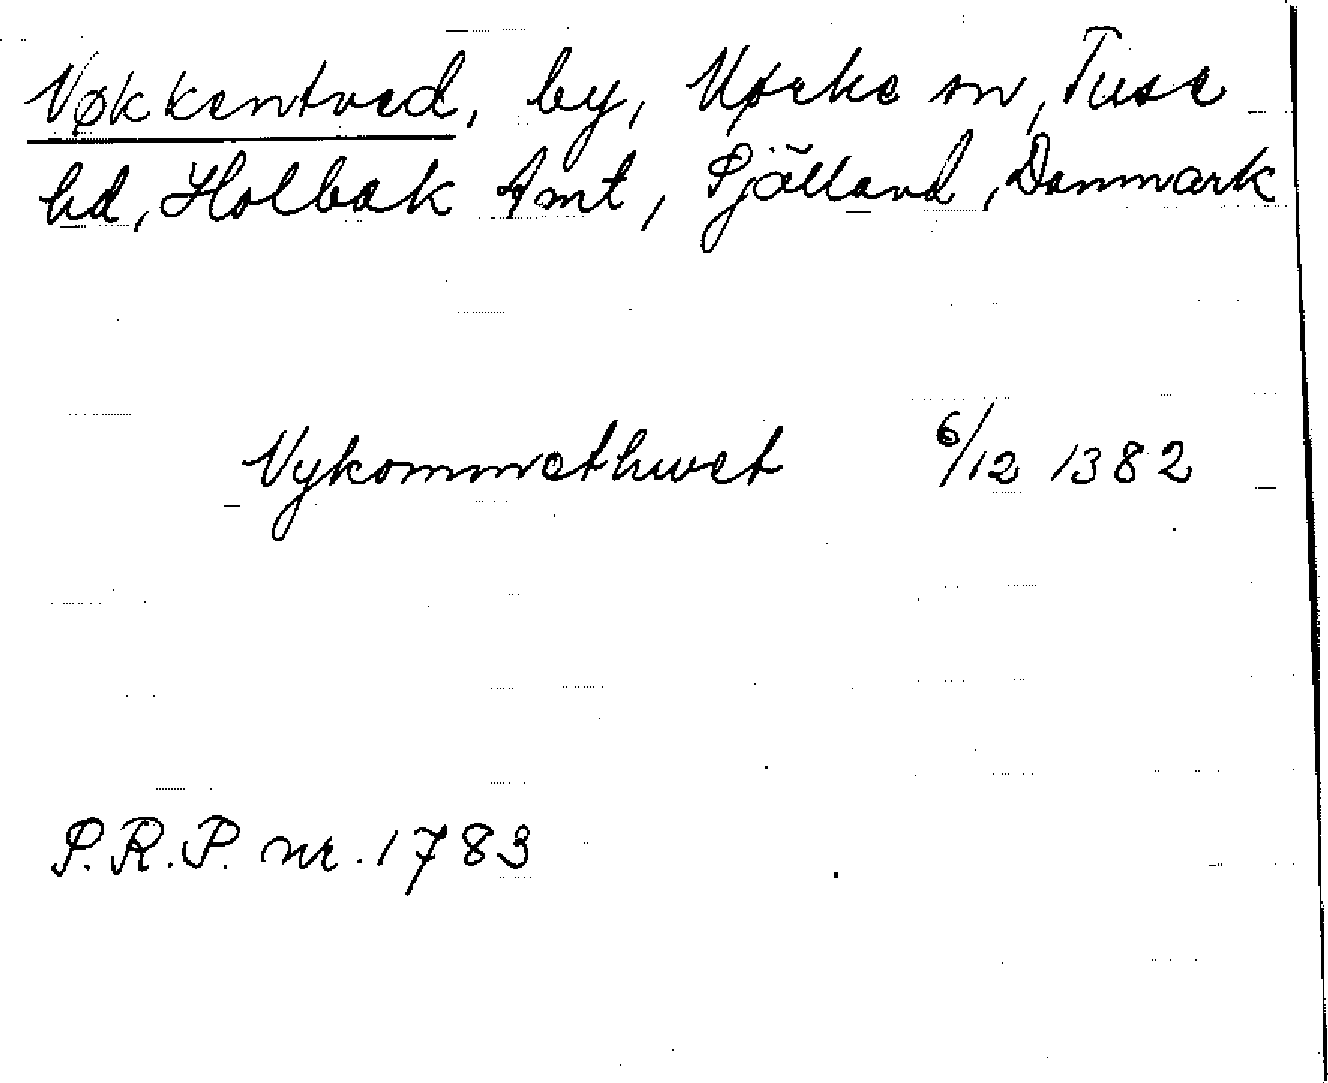 Nøkkentved, by, Mørke sn, Tuse
hd, Holbæk Amt, Själland, Danmark
Nykommethwet 6/12 1382
S.R.P. nr. 1783